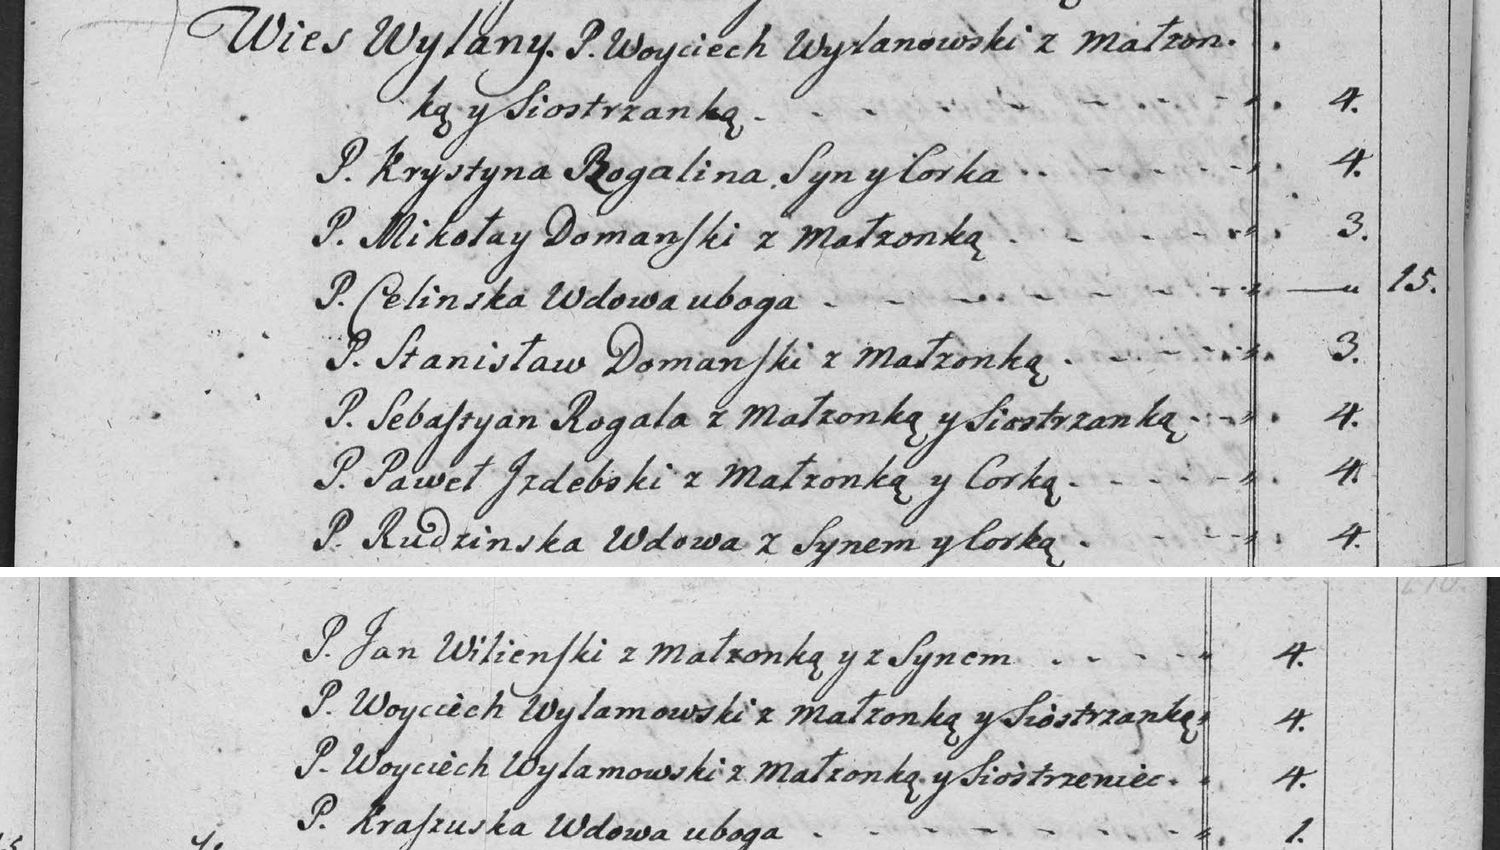 Wies Wylany. P. Woyciech Wylanowski z Małzon.
ką y Siostrzanką. 4.
P. Krystyna Rogalina Syn y Corka 4.
P. Mikołay Domanski z Małzonką 3.
P. Celinska Wdowa uboga 15.
P. Stanisław Domanski z Małzonką 3.
P. Sebastyan Rogala z Małzonką y Siostrzanką 4.
P. Paweł Jzdebski z Małzonką y Corką 4.
P. Rudzinska Wdowa z Synem y Corką 4.
P. Jan Wilienski z Małzonką y z Synem 4.
P. Woyciech Wylamowski z Małzonką y Siostrzanką 4.
P. Woyciech Wylamowski z Małzonką y Siostrzeniec. 4.
P. Kraszuska Wdowa uboga 1.